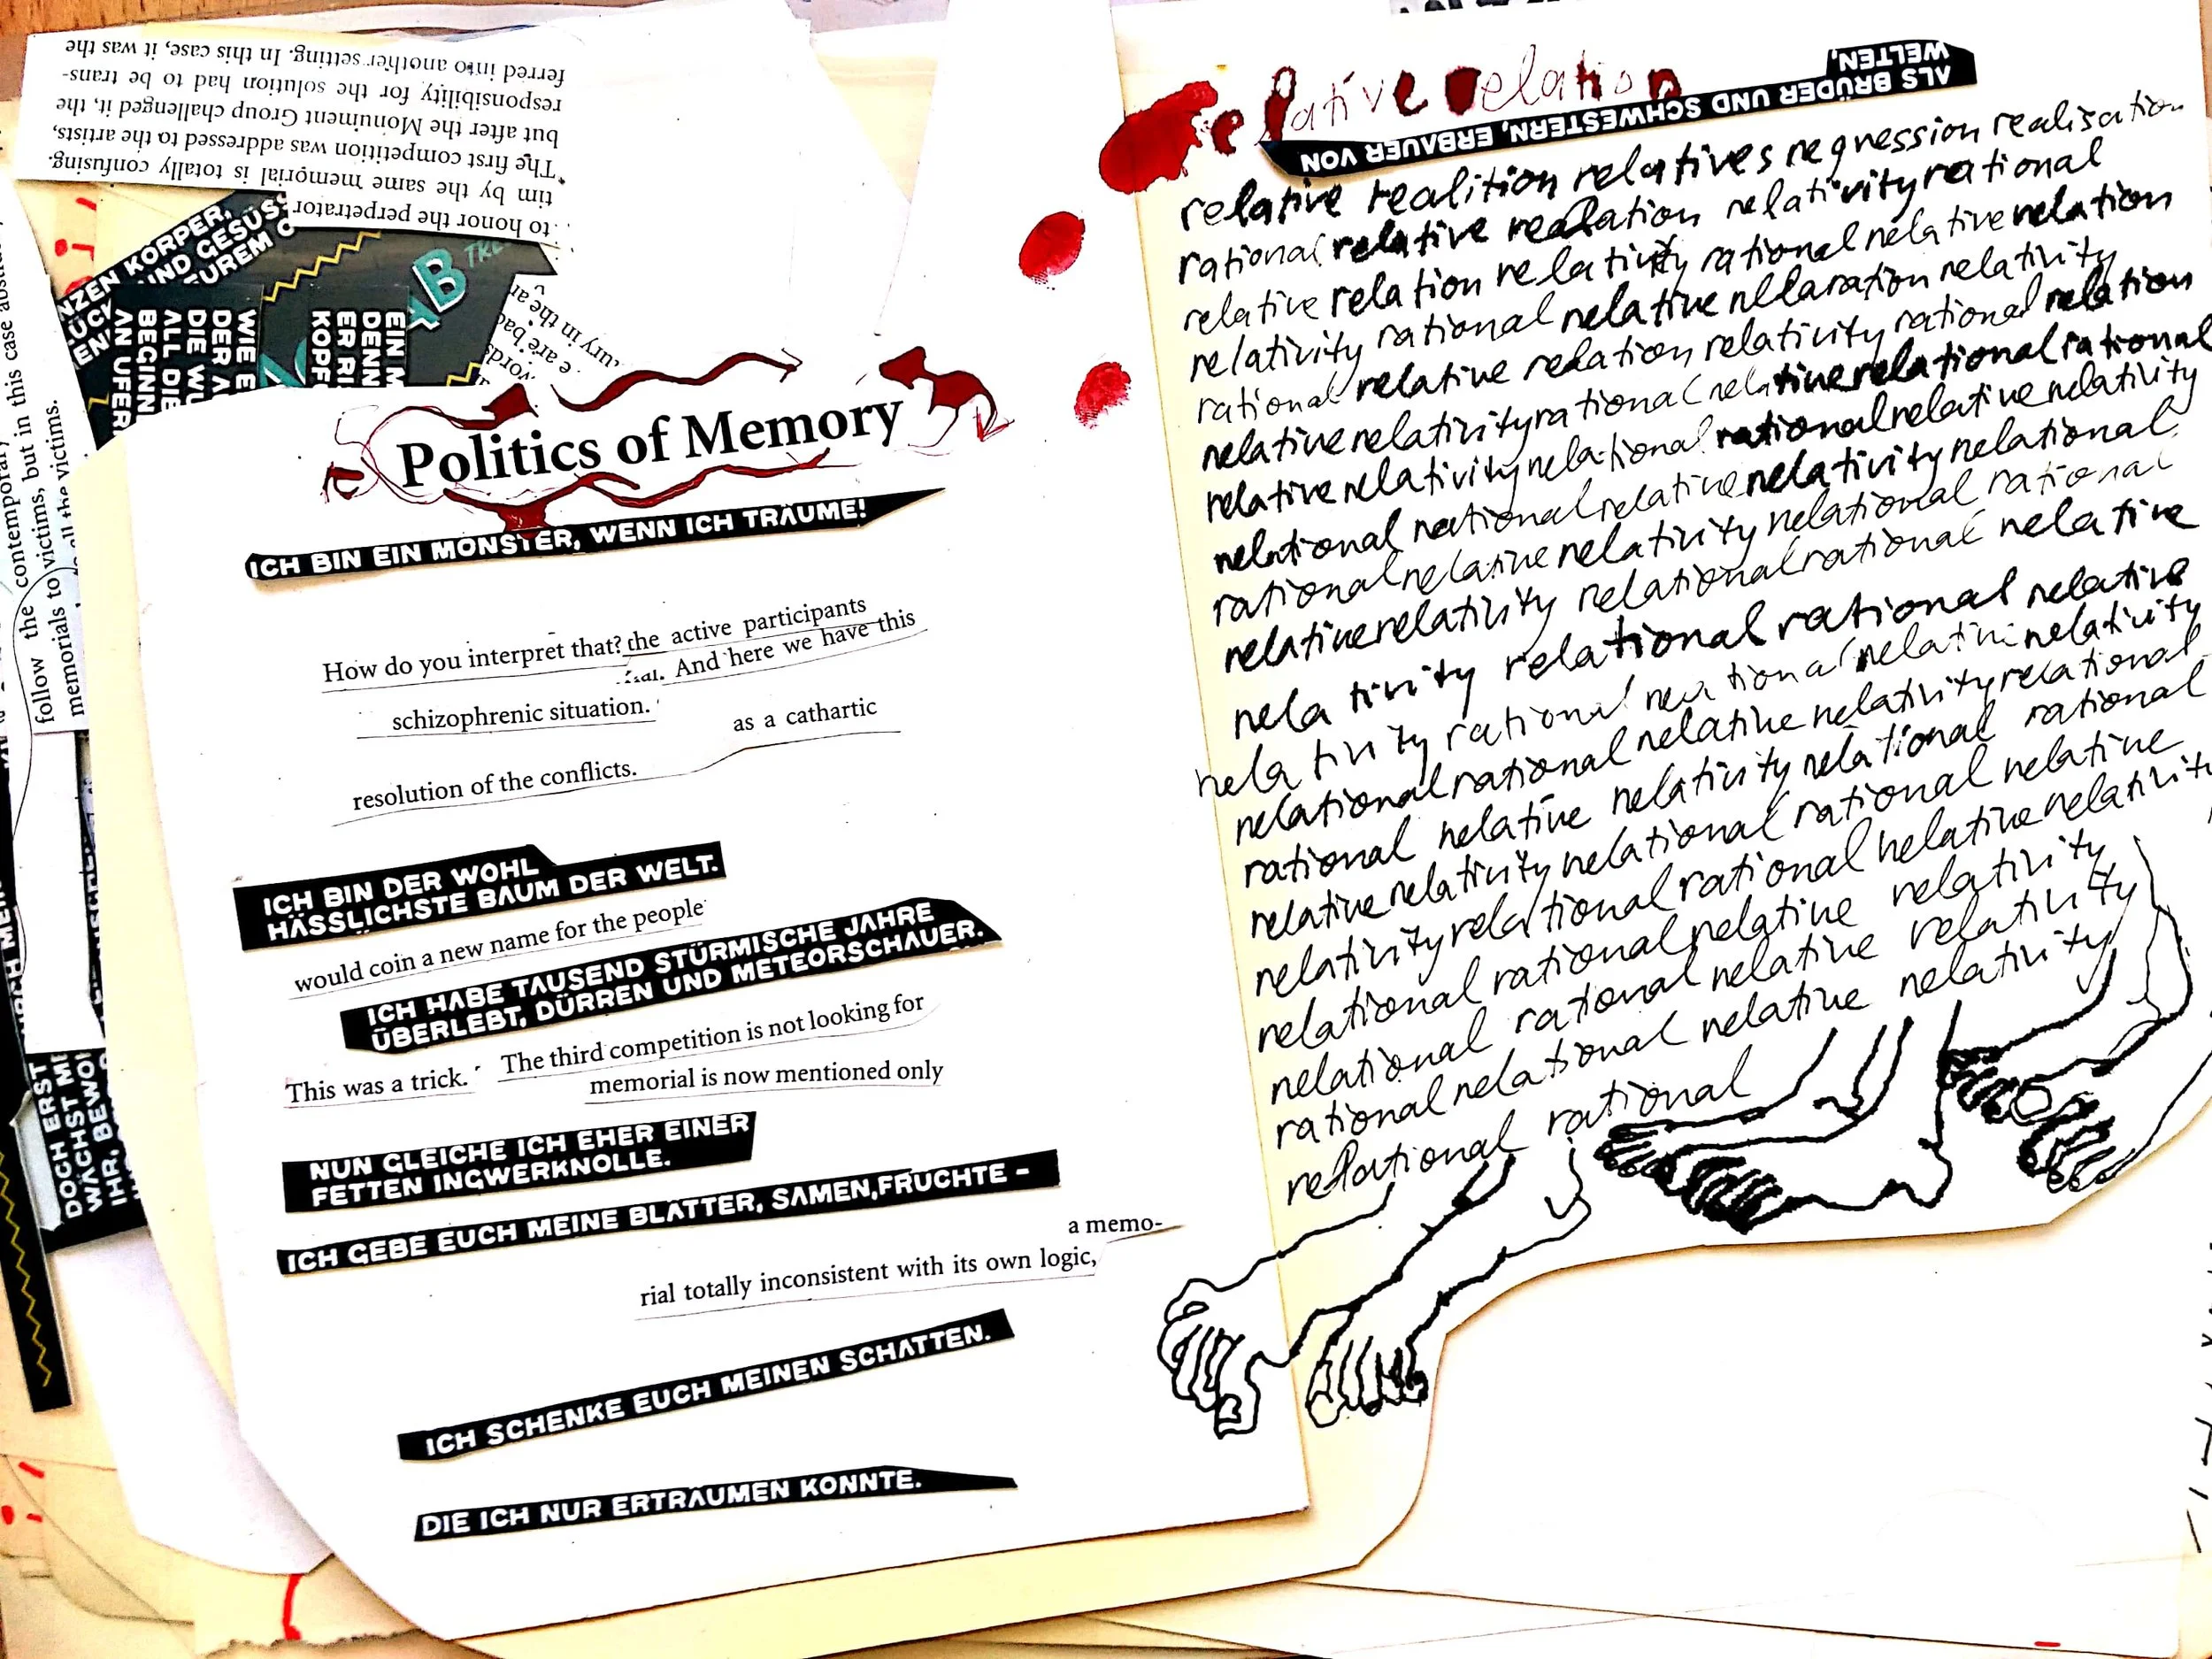 ferred into another setting. In this case, it was the
responsibility for the solution had to be trans-
but after the Monument Group challenged it, the
The first competition was addressed to the artists,
tim by the same memorial is totally confusing.
to honor the perpetrator
NZEN KÖRPER,
UND GESÜSS
EUREM
AB
EIN M
DENN
ER RI
KOPF
WIE E
DER A
DIE WU
ALL DIE
BEGINN
AN UFER
ury in the ar
e are bad
words
the contemporary
but in this case
follow
memorials to victims,
all the victims.
Politics of Memory
ICH BIN EIN MONSTER, WENN ICH TRÄUME!
How do you interpret that? the active participants
And here we have this
schizophrenic situation.
as a cathartic
resolution of the conflicts.
ICH BIN DER WOHL
HÄSSLICHSTE BAUM DER WELT.
would coin a new name for the people
ICH HABE TAUSEND STÜRMISCHE JAHRE
ÜBERLEBT, DÜRREN UND METEORSCHAUER.
This was a trick. The third competition is not looking for
memorial is now mentioned only
NUN GLEICHE ICH EHER EINER
FETTEN INGWERKNOLLE.
ICH GEBE EUCH MEINE BLÄTTER, SAMEN, FRÜCHTE –
a memo-
rial totally inconsistent with its own logic,
ICH SCHENKE EUCH MEINEN SCHATTEN.
DIE ICH NUR ERTRÄUMEN KONNTE.
DOCH ERST
WÄCHST ME
IHR, BEWO
relative relation
ALS BRÜDER UND SCHWESTERN, ERBAUER VON
WELTEN,
relative realition relatives regression realisation
rational relative realation relativity rational
relative relation relativity rational relative relation
relativity rational relative relaration relativity
rational relative relation relativity rational relation
relative relativity rational relative relational rational
relative relativity relational rational relative relativity
relational rational relative relativity relational
rational relative relativity relational rational
relative relativity relational rational relative
relativity relational rational relative
relativity rational rational relative relativity
relational rational relative relativity relational
rational relative relativity relational rational
relative relativity relational rational relative
relativity relational rational relative relativity
relational rational relative relativity
relational rational relative relativity
rational relational relative relativity
relational rational